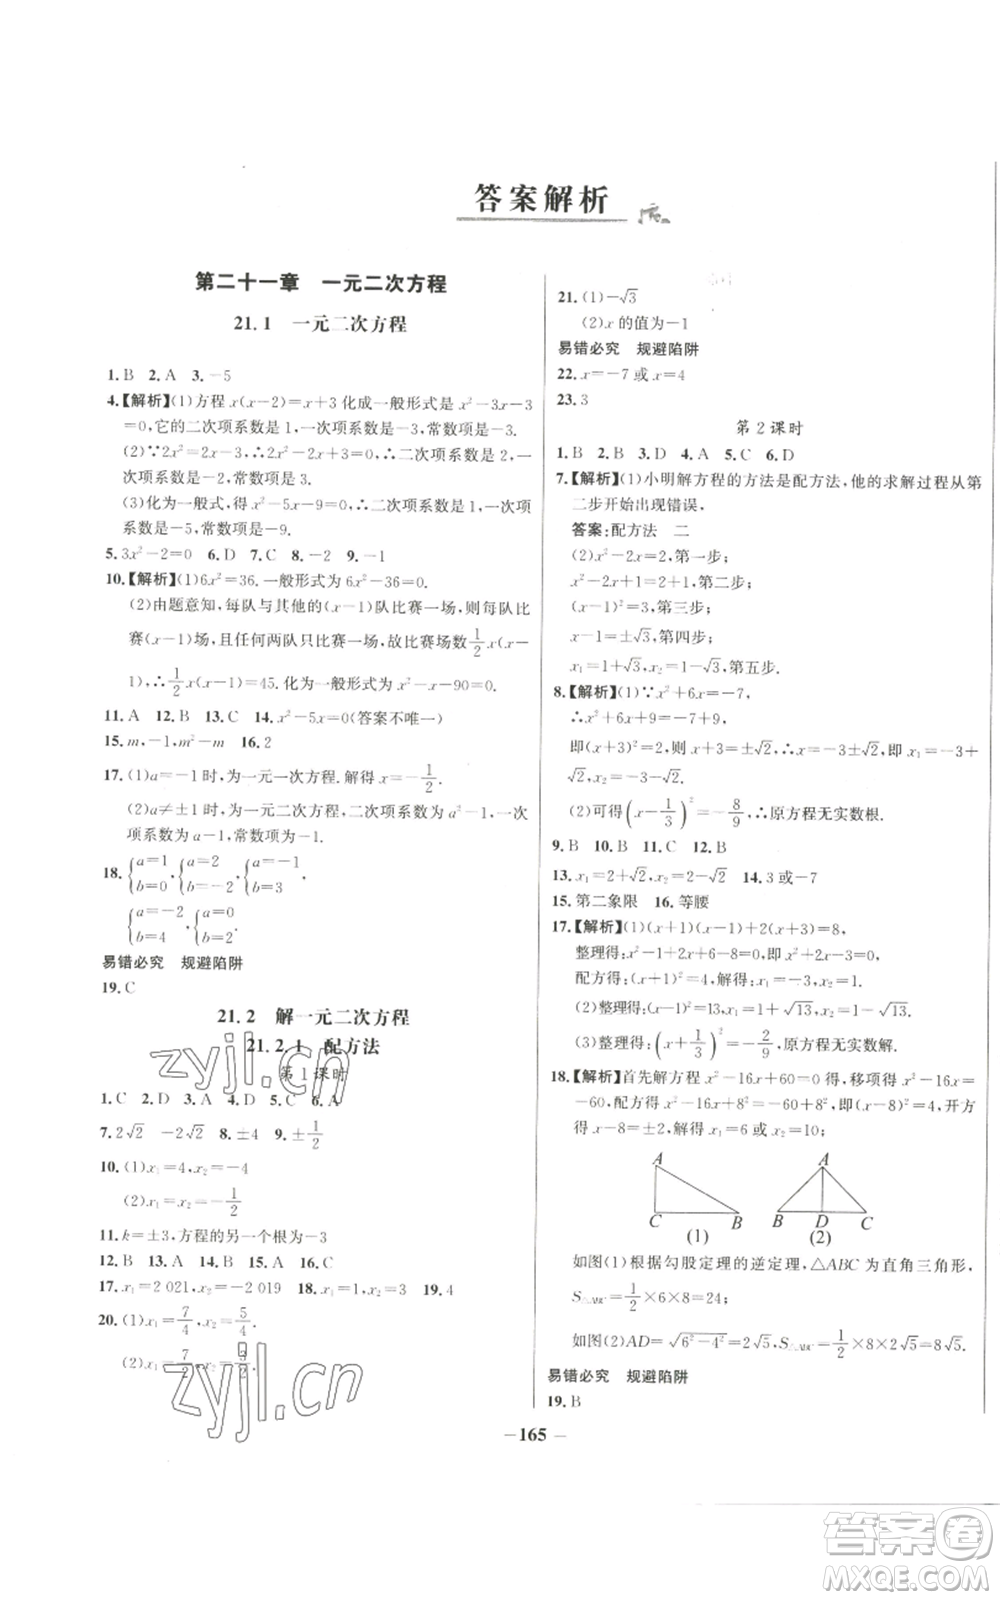 答案解析
第二十一章 一元二次方程
21.1 一元二次方程
1.B 2.A 3.-5
4.【解析】(1)方程 x(x-2)=x+3 化成一般形式是 x²-3x-3
=0,它的二次项系数是 1,一次项系数是-3,常数项是-3.
(2)∵2x²=2x-3,∴2x²-2x+3=0,∴二次项系数是 2,一
次项系数是-2,常数项是 3.
(3)化为一般式,得 x²-5x-9=0,∴二次项系数是 1,一次项
系数是-5,常数项是-9.
5.3x²-2=0 6.D 7.D 8.-2 9.-1
10.【解析】(1)6x²=36.一般形式为 6x²-36=0.
(2)由题意知,每队与其他的(x-1)队比赛一场,即每队需比
赛(x-1)场,且任何两队只比赛一场,故比赛场数 1/2 x(x-
1),∴1/2 x(x-1)=45.化为一般形式为 x²-x-90=0.
11.A 12.B 13.C 14.x²-5x=0(答案不唯一)
15.m,-1,m²-m 16.2
17.(1)a=-1 时,为一元一次方程.解得 x=-1/2.
(2)a≠±1 时,为一元二次方程,二次项系数为 a²-1,一次
项系数为 a-1,常数项为-1.
18.{a=1 b=0,{a=2 b=0,{a=2 b=3
{a=-2 b=4,{a=0 b=2
易错必究 规避陷阱
19.C
21.2 解一元二次方程
21.2.1 配方法
第 1 课时
1.C 2.D 3.A 4.D 5.C 6.A
7.2√2 -2√2 8.±4 9.±1/2
10.(1)x₁=4,x₂=-4
(2)x₁=x₂=-1/2
11.k=±3,方程的另一个根为-3
12.B 13.A 14.B 15.A 16.A
17.x₁=2 021,x₂=-2 019 18.2 19.4
20.(1)x₁=7/4,x₂=5/4
(2)x₁=7/2,x₂=-7
21.(1)-√3
(2)x 的值为-1
易错必究 规避陷阱
22.x=-7 或 x=4
23.3
第 2 课时
1.B 2.B 3.D 4.A 5.C 6.D
7.【解析】(1)小明解方程的方法是配方法,他的求解过程从第
二步开始出现错误,
答案:配方法 二
(2)x²-2x=2,第一步;
x²-2x+1=2+1,第二步;
(x-1)²=3,第三步;
x-1=±√3,第四步;
x₁=1+√3,x₂=1-√3,第五步.
8.【解析】(1)∵x²+6x=-7,
∴x²+6x+9=-7+9,
即(x+3)²=2,则 x+3=±√2,∴x=-3±√2,即 x₁=-3+
√2,x₂=-3-√2.
(2)可得(x-1/3)²=-8/9,∴原方程无实数根.
9.B 10.B 11.C 12.B
13.x₁=2+√2,x₂=2-√2 14.3 或-7
15.第二象限 16.等腰
17.【解析】(1)(x+1)(x-1)+2(x+3)=8,
整理得:x²-1+2x+6-8=0,即 x²+2x-3=0,
配方得:(x+1)²=4,解得:x₁=-3,x₂=1.
(2)整理得:(x-1)²=13,x₁=1+√13,x₂=1-√13.
(3)整理得:(x+1/3)²=-2/9,∴原方程无实数解.
18.【解析】首先解方程 x²-16x+60=0 得,移项得 x²-16x=
-60,配方得 x²-16x+8²=-60+8²,即(x-8)²=4,开方
得 x-8=±2,解得:x₁=6 或 x₂=10;
A
C B
(1)
A
B D C
(2)
如图(1)根据勾股定理的逆定理,△ABC 为直角三角形,
S△ABC=1/2×6×8=24;
如图(2)AD=√(6²-4²)=2√5,S△ABC=1/2×8×2√5=8√5.
易错必究 规避陷阱
19.B
－165－
zyjl.cn
zyjl.cn
答案圈
MXQE.COM